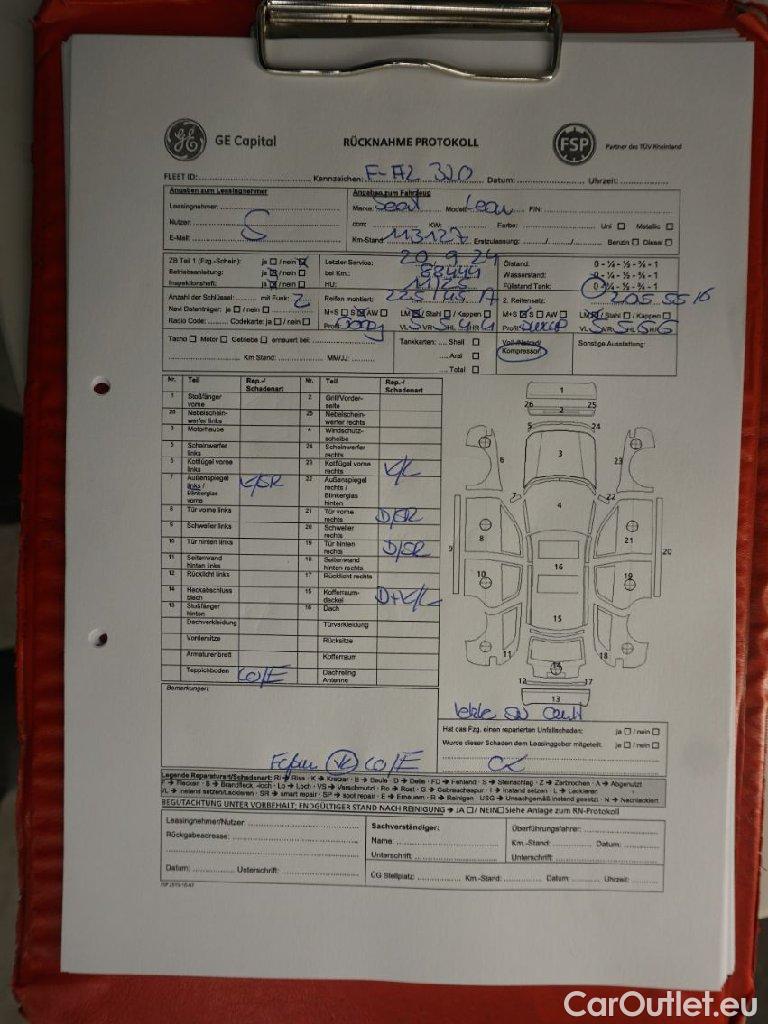 GE Capital RÜCKNAHME PROTOKOLL FSP Partner des TÜV Rheinland
FLEET ID: Kennzeichen: F-AZ 320 Datum: Uhrzeit:
Angaben zum Leasingnehmer Angaben zum Fahrzeug
Leasingnehmer: Marke: Seat Modell: Leon FIN:
Nutzer: ccm: KW: Farbe: Uni Metallic
E-Mail: Km-Stand: 113127 Erstzulassung: / / Benzin Diesel
ZB Teil 1 (Fzg.-Schein): ja / nein Letzter Service: 20.9.24 Ölstand: 0 - ¼ - ½ - ¾ - 1
Betriebsanleitung: ja / nein bei Km.: 88444 Wasserstand: 0 - ¼ - ½ - ¾ - 1
Inspektionsheft: ja / nein HU: 11/25 Füllstand Tank: 0 - ¼ - ½ - ¾ - 1
Anzahl der Schlüssel: mit Funk: 2 Reifen montiert: 225 45 17 2. Reifensatz: 205 55 16
Navi Datenträger: ja / nein M+S S AW LM / Stahl / Kappen M+S S AW LM / Stahl / Kappen
Radio Code: Codekarte: ja / nein Profil VL 5 VR 5 HL 4 HR 4 Profil VL 5 VR 5 HL 6 HR 6
Tacho Motor Getriebe erneuert bei: Tankkarten: Shell Voll-/Notrad/ Sonstige Ausstattung:
Kompressor
Aral
Km Stand: MM/JJ: Total
Nr. Teil Rep.-/ Schadenart Nr. Teil Rep.-/ Schadenart
1 Stoßfänger vorne 2 Grill/Vorderseite
26 Nebelscheinwerfer links 25 Nebelscheinwerfer rechts
3 Motorhaube 4 Windschutzscheibe
5 Scheinwerfer links 24 Scheinwerfer rechts
6 Kotflügel vorne links 23 Kotflügel vorne rechts K/L
7 Außenspiegel links / Blinkerglas vorne K/SR 22 Außenspiegel rechts / Blinkerglas hinten
8 Tür vorne links 21 Tür vorne rechts D/SR
9 Schweller links 20 Schweller rechts
10 Tür hinten links 19 Tür hinten rechts D/SR
11 Seitenwand hinten links 18 Seitenwand hinten rechts
12 Rücklicht links 17 Rücklicht rechts
14 Heckabschlussblech 15 Kofferraumdeckel D+K/L
13 Stoßfänger hinten 16 Dach
Dachverkleidung Türverkleidung
Vordersitze Rücksitze
Armaturenbrett Kofferraum
Teppichboden LO/E Dachreling Antenne
1
26 25
2
5 24
3
6 23
7 22
4
8 21
9 20
16
10 19
15
11 18
14
12 17
13
Bemerkungen:
Hat das Fzg. einen reparierten Unfallschaden: ja / nein
Wurde dieser Schaden dem Leasinggeber mitgeteilt: ja / nein
Felgen VR LO/E
Legende Reparaturart/Schadenart: Ri → Riss · K → Kratzer · B → Beule · D → Delle · FD → Fehlend · S → Steinschlag · Z → Zerbrochen · A → Abgenutzt
BEGUTACHTUNG UNTER VORBEHALT; ENDGÜLTIGER STAND NACH REINIGUNG → JA / NEIN Siehe Anlage zum RN-Protokoll
Leasingnehmer/Nutzer Sachverständiger: Überführungsfahrer:
Rückgabeadresse: Name Km.-Stand: Datum:
Unterschrift: Unterschrift:
Datum: Unterschrift: CG Stellplatz: Km.-Stand: Datum: Uhrzeit:
CarOutlet.eu